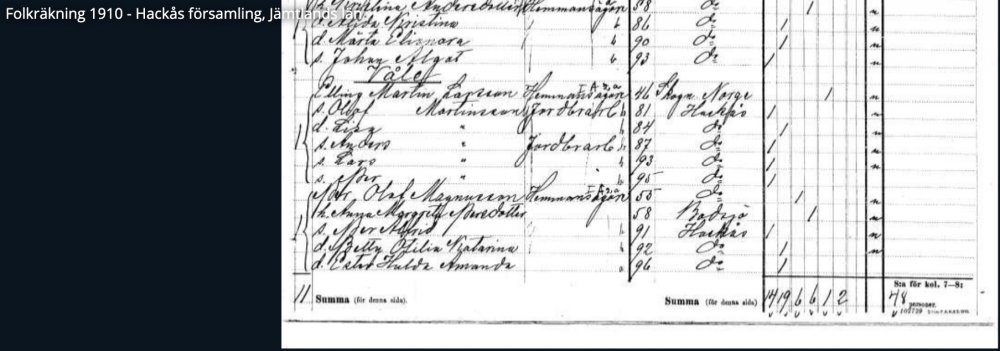 Folkräkning 1910 - Hackås församling, Jämtlands län
h. Kristina Andersdotter Hemmansägare 58 do
d. Alida Kristina 86 do
d. Märta Elionora 90 do
s. Johan Algot 93 do
Våle
Elling Martin Larsson Hemmansägare 46 Skogn Norge
s. Olof Martinsson Jordbrarb 81 Hackås
d. Lisa " 84 do
s. Anders " Jordbrarb 87 do
s. Lars " 93 do
s. Per " 95 do
Per Olof Magnusson Hemmansägare 55 do
h. Anna Margreta Persdotter 58 Bodsjö
s. Per Alfrid 91 Hackås
d. Betty Otilia Katarina 92 do
d. Ester Hulda Amanda 96 do
S:a för kol. 7–8:
11 Summa (för denna sida). Summa (för denna sida) 14 19 6 6 1 2 48 personer.